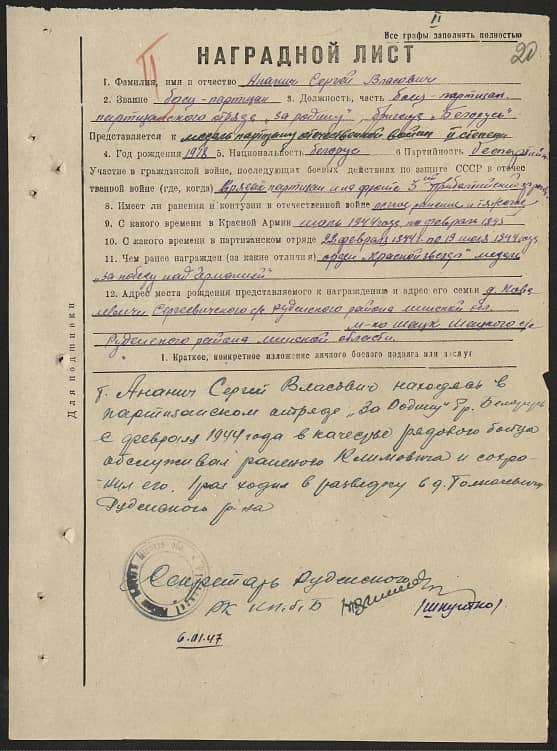 II
Все графы заполнять полностью
20
II
НАГРАДНОЙ ЛИСТ
1. Фамилия, имя и отчество Ананич Сергей Власович
2. Звание боец-партизан 3. Должность, часть боец-партизан
партизанского отряда „За родину", бригада „Беларусь"
Представляется к медаль партизану отечественной войны II степени
4. Год рождения 1918 5. Национальность белорус 6 Партийность беспартийн
Участие в гражданской войне, последующих боевых действиях по защите СССР в отече-
ственной войне (где, когда) партизан и на фронте 3ий Прибалтийский
8. Имеет ли ранения и контузии в отечественной войне легкое ранение и тяжелое
9. С какого времени в Красной Армии июль 1944 года по февраль 1945
10. С какого времени в партизанском отряде 22 февраля 1944 г по 19 июля 1944 года
11. Чем ранее награжден (за какие отличия) орден „Красной звезды" медаль
„за победу над Германией"
12. Адрес места рождения представляемого к награждению и адрес его семьи д.
Сергеевичского с/с Руденского района минской обл.
м-ко Шацк Шацкого с/с
Руденского района минской области.
I. Краткое, конкретное изложение личного боевого подвига или заслуг
т. Ананич Сергей Власович находясь в
партизанском отряде „За Родину" бр. Беларусь
с февраля 1944 года в качестве рядового бойца
обслуживал раненого Климовича и сохра-
нил его. 1 раз ходил в разведку в д.
Руденского р-на
Секретарь Руденского
РК КП(б)Б
6.01.47
Для подшивки